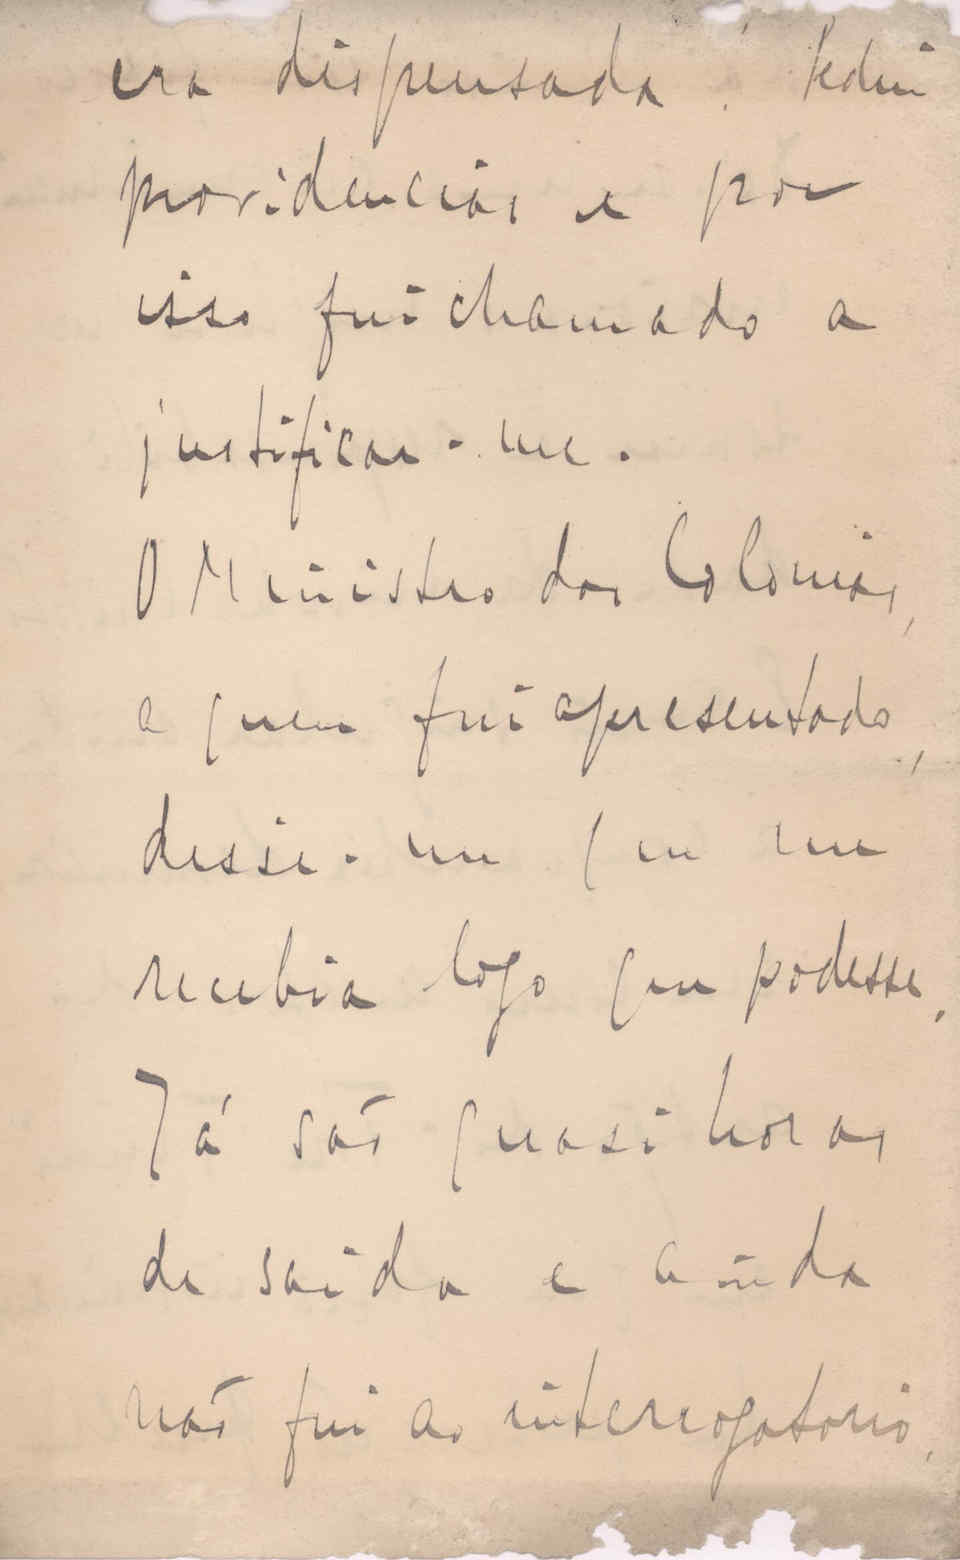 era dispensada. Pediu
providencias e por
isso fui chamado a
justificar-me.
O Ministro das Colonias,
a quem fui apresentado,
disse-me que me
recebia logo que podesse.
Já são quasi horas
de saida e ainda
não fui ao interrogatorio,